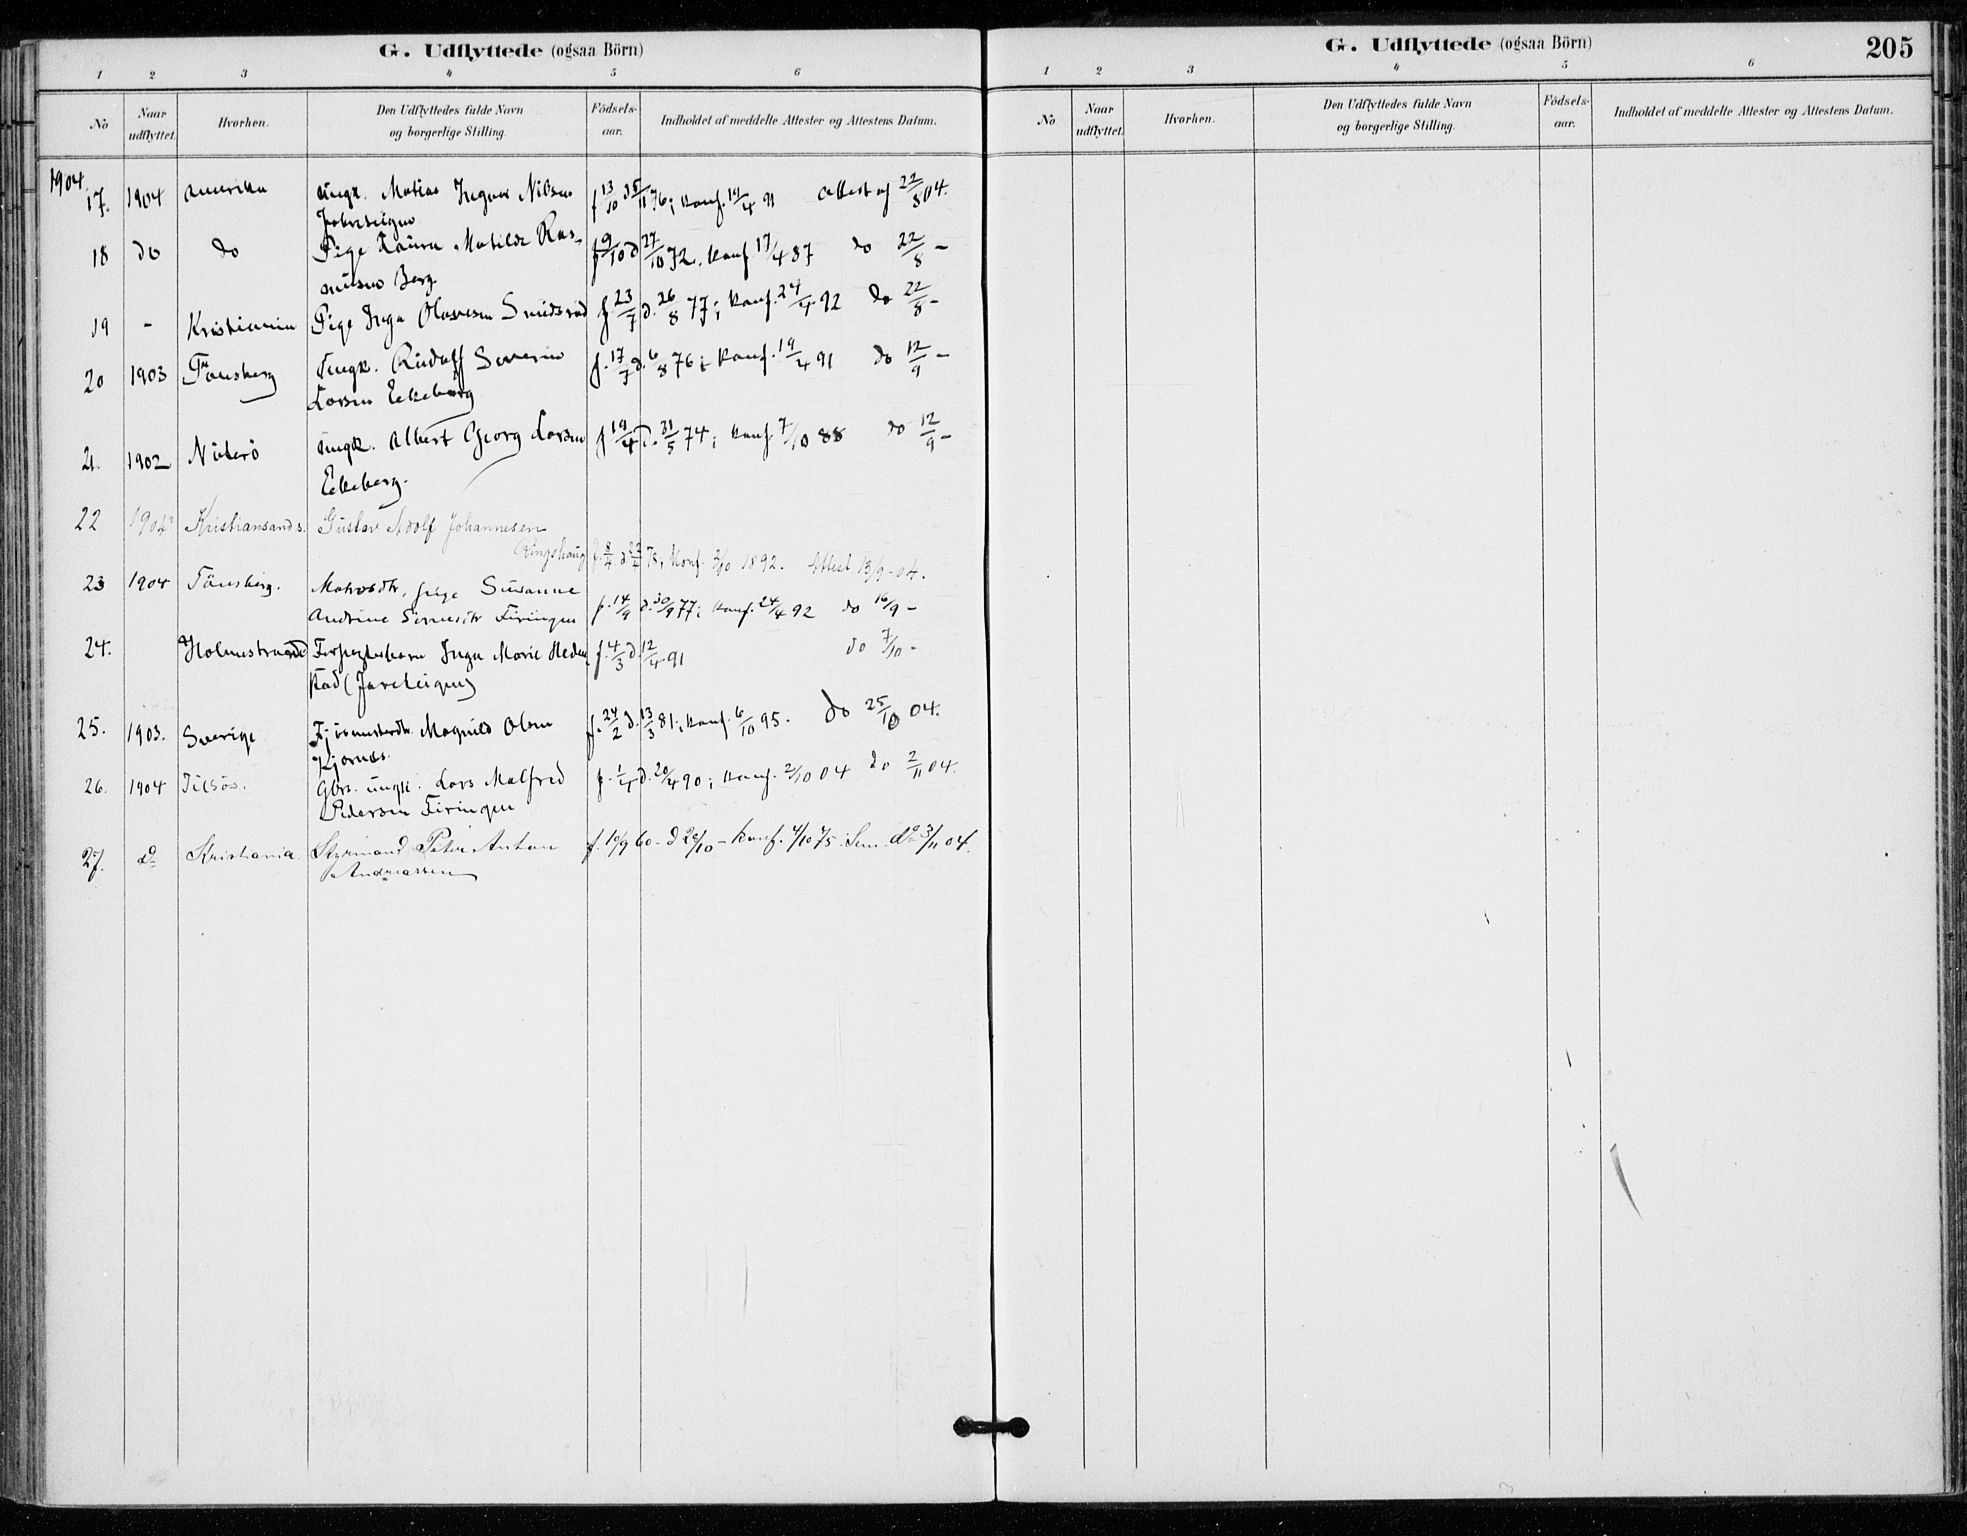 G. Udflyttede (ogsaa Börn)
1 2 3 4 5 6
No Naar udflyttet. Hvorhen. Den Udflyttedes fulde Navn og borgerlige Stilling. Födsels-aar. Indholdet af meddelte Attester og Attestens Datum.
1904
17. 1904 Amerika Ungk. Matias Ingvar Nilsen f 13/10 d 5/11 76; konf. 19/4 91 Attest af 22/8 04.
18 do do Pige Laura Matilde Ras- f 9/10 d 27/10 72. konf 17/4 87 do 22/8 –
musen Berg
19 - Kristiania Pige Inga Olavesen Smidsrød f. 23/7 d. 26/8 77; konf. 24/4 92 do 22/8 –
20 1903 Tönsberg Ungk. Rudolf Severin f. 17/7 d. 6/8 76; konf. 19/4 91 do 12/9 –
Larsen Eekeberg
21. 1902 Nöterö Ungk. Albert Georg Larsen f 19/4 d. 31/5 74; konf 7/10 88 do 12/9 –
Eekeberg.
22 1904 Kristiansand s. Gustav Adolf Johannesen
Ringshaug f. 8/4 d 22/4 78; Konf. 2/10 1892. Attest 13/9-04.
23 1904 Tönsberg. Matrosdtr, pige Susanne
Andrine Firingen f. 14/9 d. 30/9 77; konf. 24/4 92 do 16/9 –
24. Holmestrand Inga Marie f. 4/3 d. 12/4 91 do 7/10 -
stad (Jareteigen)
25. 1903. Sverige Magnild Olsen f. 24/2 d. 13/3 81; konf. 6/10 95. do 25/10 04.
Kjærnes.
26. 1904 Gbr. ungk. Lars Malfred f. 1/4 d. 20/4 90; konf. 2/10 04 do 2/11 04.
Pedersen Firingen
27. do Kristiania. Styrmand Peter Anton f. 10/9 60 - d 20/10 – konf. 4/10 75. do 3/11 04.
Andreassen
G. Udflyttede (ogsaa Börn)
205
1 2 3 4 5 6
No Naar udflyttet. Hvorhen. Den Udflyttedes fulde Navn og borgerlige Stilling. Födsels-aar. Indholdet af meddelte Attester og Attestens Datum.